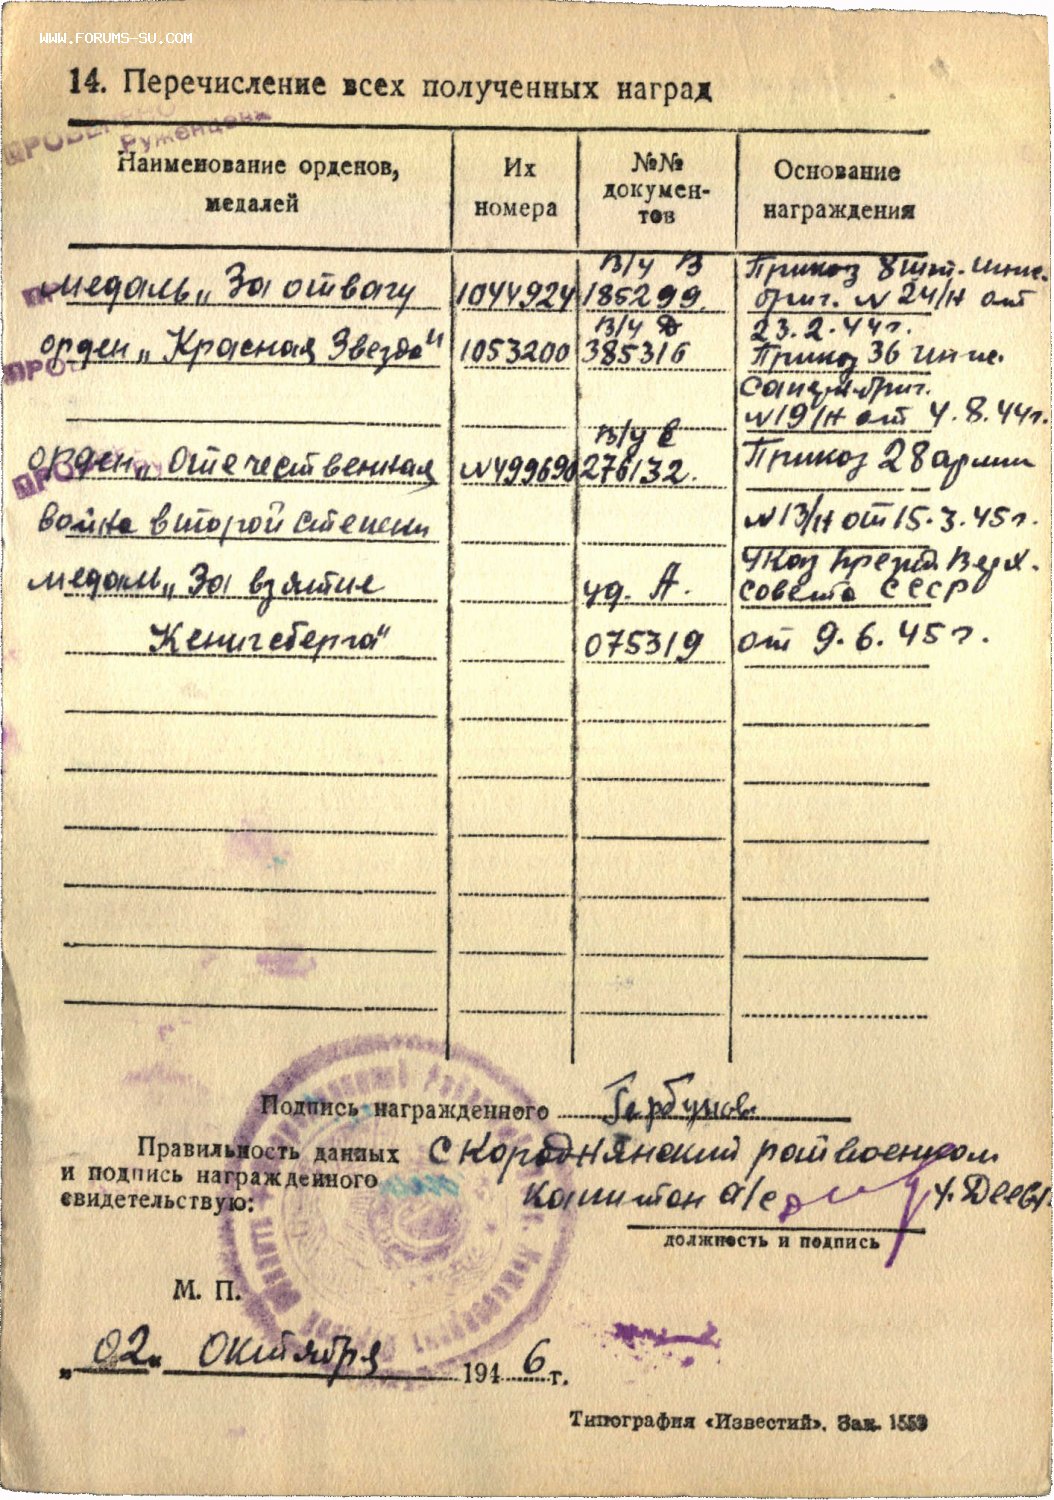 WWW.FORUMS-SU.COM
14. Перечисление всех полученных наград
ПРОВЕРЕНО
Наименование орденов, медалей
Их номера
№№ докумен-тов
Основание награждения
медаль „За отвагу
1044924
в/у В
185299.
Приказ 8 шт. инж.
бриг. N 24/н от
23.2.44г.
орден „Красная Звезда"
1053200
в/у
385316
Приказ 36 инж.
N19/н от 4.8.44г.
орден „Отечественная
N499690
в/у
276132.
Приказ 28 армии
война второй степени
N13/н от 15.3.45г.
медаль „За взятие
Кенигсберга"
уд. А.
075319
Указ Презид. Верх.
Совета СССР
от 9.6.45г.
Подпись награжденного
Правильность данных
и подпись награжденного
свидетельствую:
Скороднянский райвоенком
Капитан а/с
должность и подпись
М. П.
„02„ Октября 1946 г.
Типография «Известий». Зак. 1553